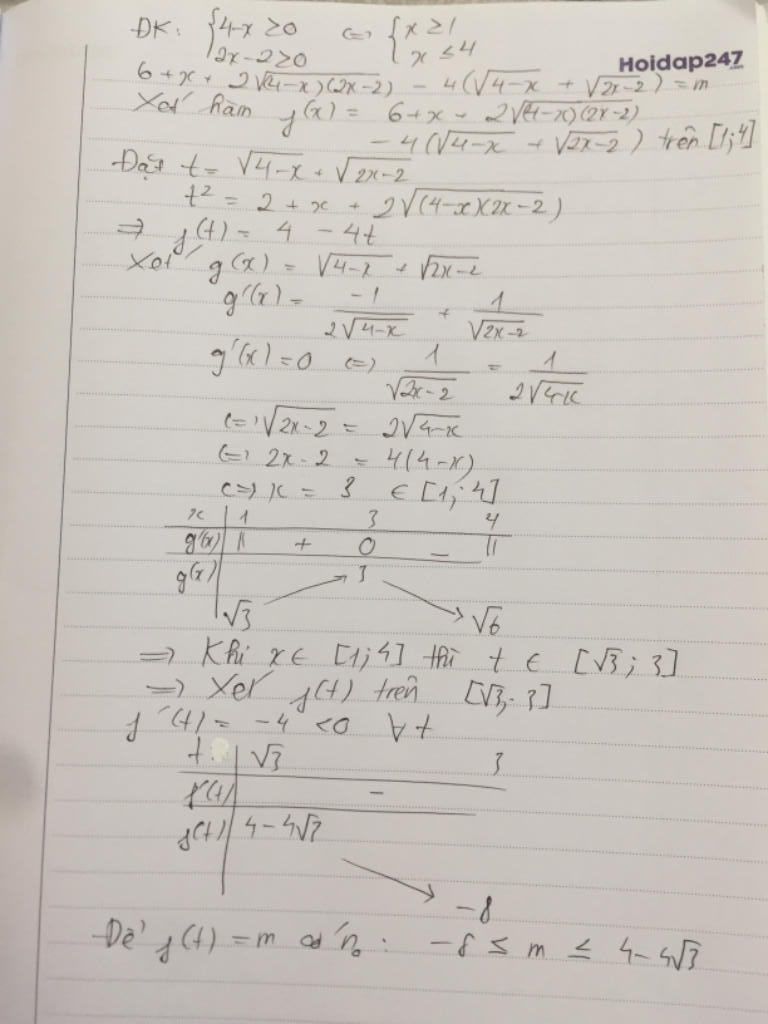 ĐK: {4-x ≥0 <=> {x ≥1
2x-2≥0 x ≤4
Hoidap247
.com
6+x+ 2√(4-x)(2x-2) - 4(√4-x + √2x-2) = m
Xét hàm f(x) = 6+x+ 2√(4-x)(2x-2)
- 4(√4-x + √2x-2) trên [1;4]
Đặt t= √4-x + √2x-2
t² = 2 + x + 2√(4-x)(2x-2)
=> f(t) = 4 - 4t
Xét g(x) = √4-x + √2x-2
g'(x) = -1/(2√4-x) + 1/√2x-2
g'(x)=0 <=> 1/√2x-2 = 1/(2√4-x)
<=> √2x-2 = 2√4-x
<=> 2x-2 = 4(4-x)
<=> x = 3 ∈ [1;4]
x 1 3 4
g'(x) || + 0 - ||
g(x) 3
√3 √6
=> Khi x∈ [1;4] thì t ∈ [√3; 3]
=> Xét f(t) trên [√3; 3]
f'(t) = -4 <0 ∀t
t √3 3
f'(t) -
f(t) 4-4√3
-8
Để f(t) = m có no: -8 ≤ m ≤ 4-4√3